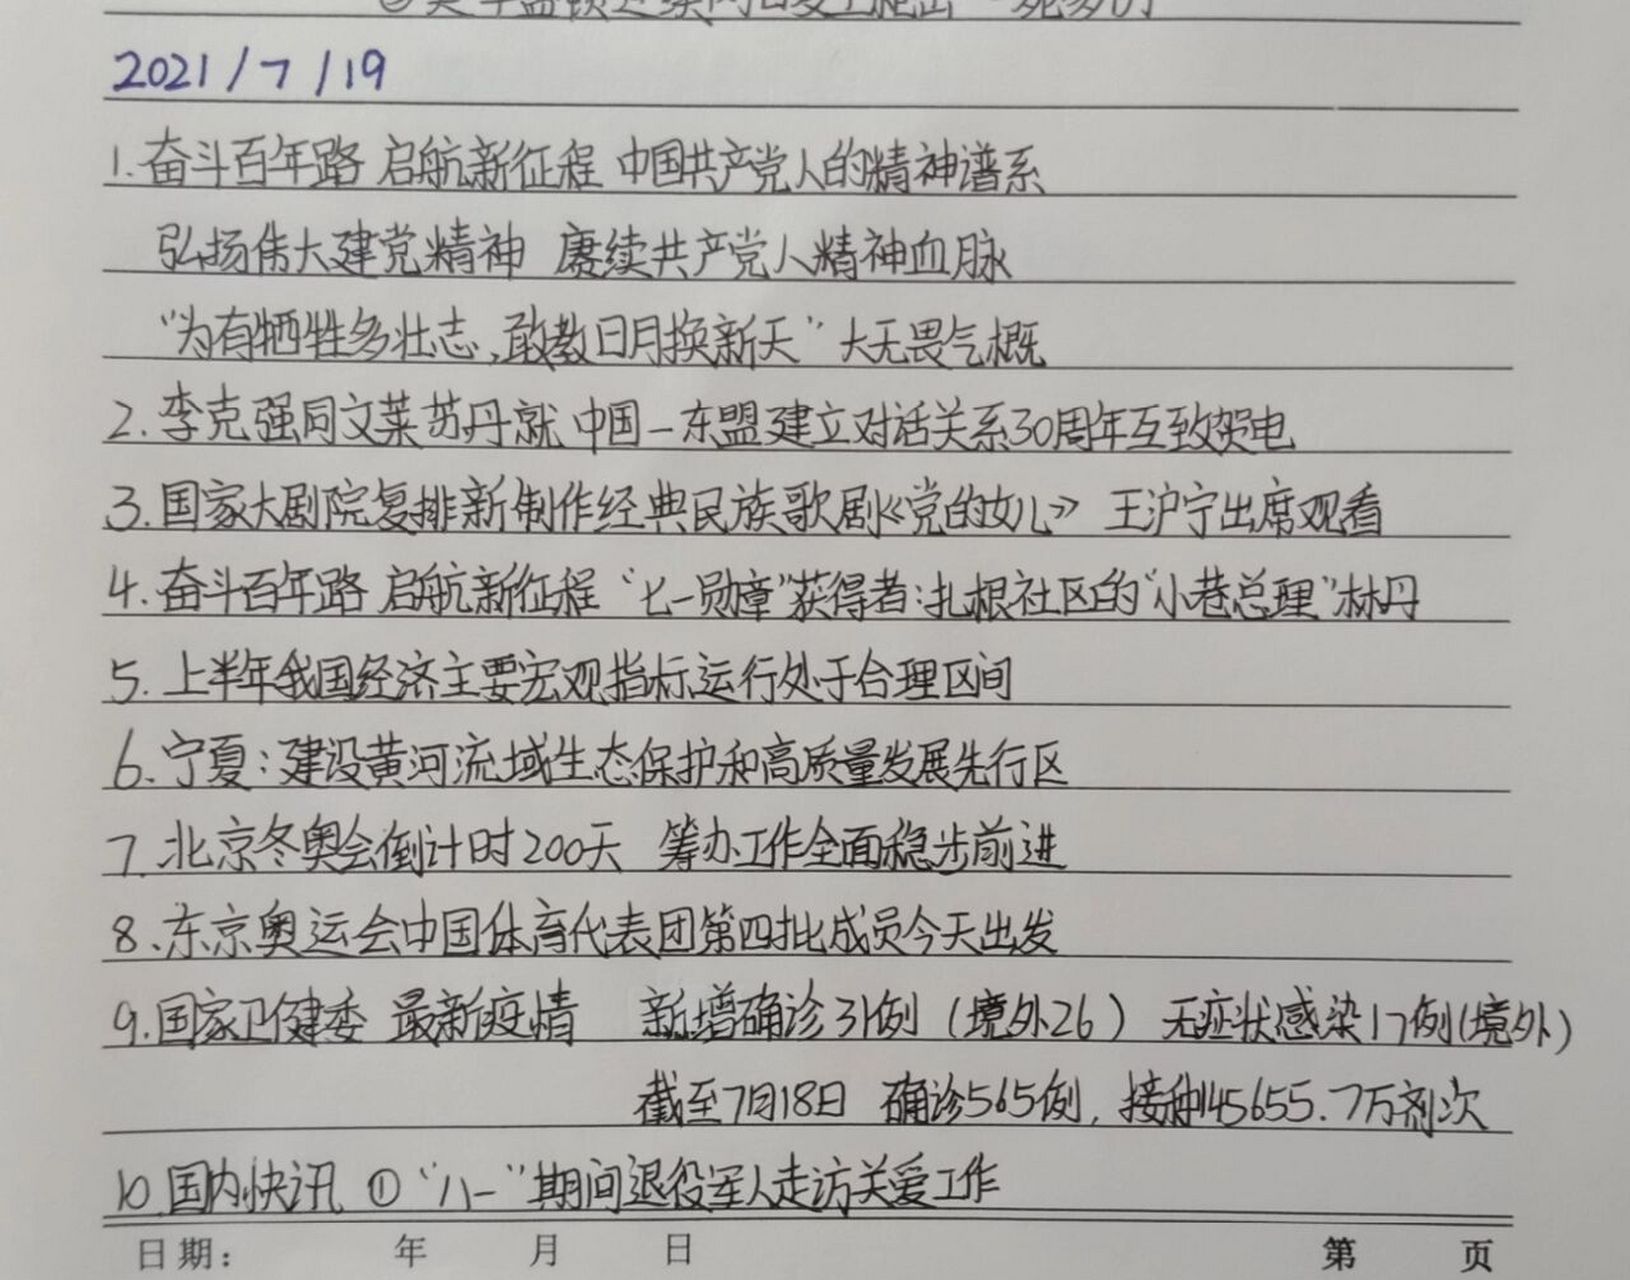 2021/7/19
1.奋斗百年路 启航新征程 中国共产党人的精神谱系
弘扬伟大建党精神 赓续共产党人精神血脉
“为有牺牲多壮志,敢教日月换新天” 大无畏气概
2.李克强同文莱苏丹就 中国—东盟建立对话关系30周年互致贺电
3.国家大剧院复排新制作经典民族歌剧《党的女儿》 王沪宁出席观看
4.奋斗百年路 启航新征程 “七一勋章”获得者:扎根社区的“小巷总理”林丹
5.上半年我国经济主要宏观指标运行处于合理区间
6.宁夏:建设黄河流域生态保护和高质量发展先行区
7.北京冬奥会倒计时200天 筹办工作全面稳步前进
8.东京奥运会中国体育代表团第四批成员今天出发
9.国家卫健委 最新疫情 新增确诊31例(境外26) 无症状感染17例(境外)
截至7月18日 确诊565例,接种145655.7万剂次
10.国内快讯 ①“八一”期间退役军人走访关爱工作
日期: 年 月 日 第 页